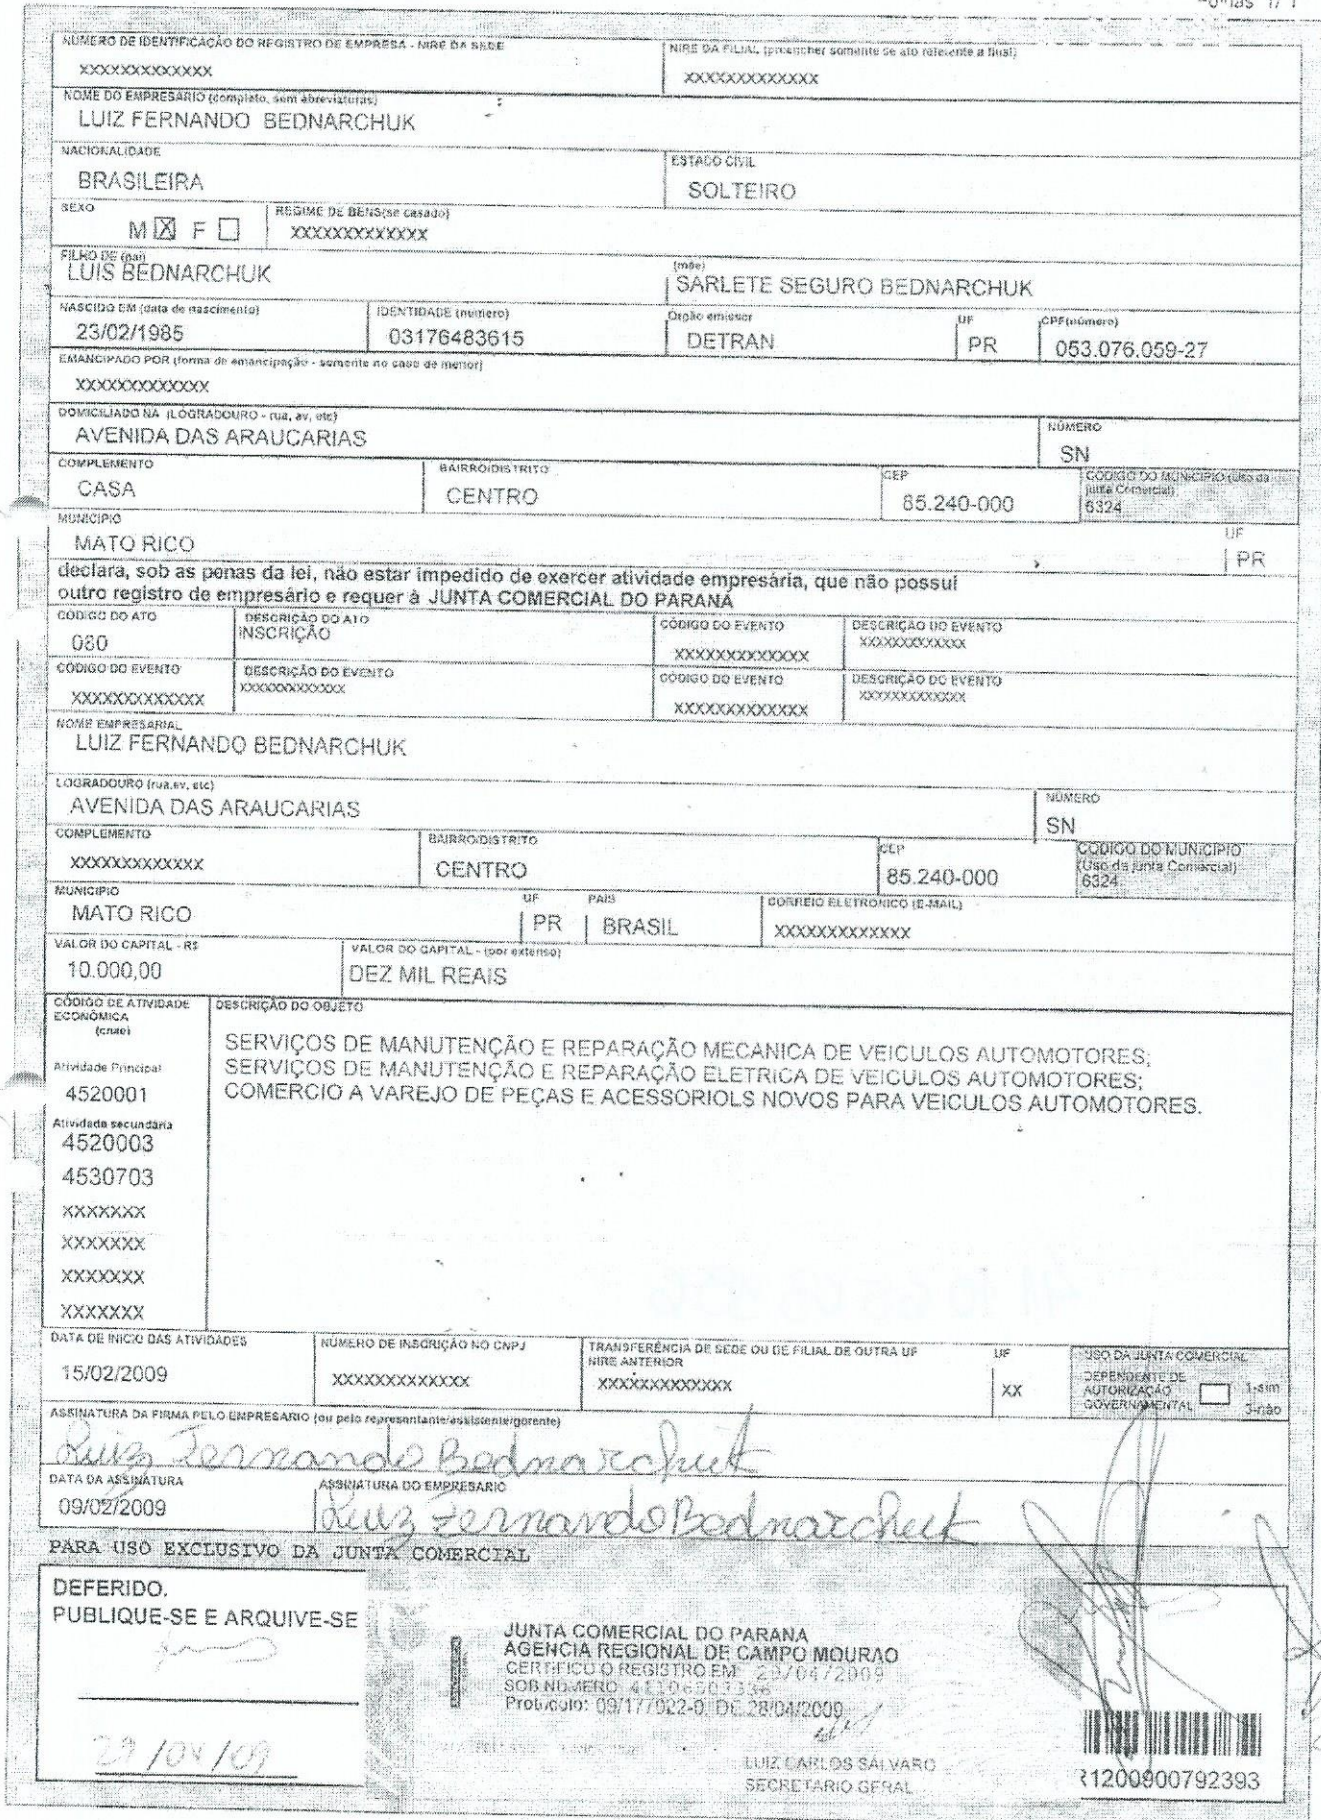 NÚMERO DE IDENTIFICAÇÃO DO REGISTRO DE EMPRESA - NIRE DA SEDE
XXXXXXXXXXXXX
NIRE DA FILIAL (preencher somente se ato referente a filial)
XXXXXXXXXXXXX
NOME DO EMPRESÁRIO (completo, sem abreviaturas)
LUIZ FERNANDO BEDNARCHUK
NACIONALIDADE
BRASILEIRA
ESTADO CIVIL
SOLTEIRO
SEXO
M X F
REGIME DE BENS(se casado)
XXXXXXXXXXXXX
FILHO DE (pai)
LUIS BEDNARCHUK
(mãe)
SARLETE SEGURO BEDNARCHUK
NASCIDO EM (data de nascimento)
23/02/1985
IDENTIDADE (número)
03176483615
Órgão emissor
DETRAN
UF
PR
CPF(número)
053.076.059-27
EMANCIPADO POR (forma de emancipação - somente no caso de menor)
XXXXXXXXXXXXX
DOMICILIADO NA (LOGRADOURO - rua, av, etc)
AVENIDA DAS ARAUCARIAS
NÚMERO
SN
COMPLEMENTO
CASA
BAIRRO/DISTRITO
CENTRO
CEP
85.240-000
CÓDIGO DO MUNICÍPIO (Uso da
junta Comercial)
6324
MUNICÍPIO
MATO RICO
UF
PR
declara, sob as penas da lei, não estar impedido de exercer atividade empresária, que não possui
outro registro de empresário e requer à JUNTA COMERCIAL DO PARANÁ
CÓDIGO DO ATO
080
DESCRIÇÃO DO ATO
INSCRIÇÃO
CÓDIGO DO EVENTO
XXXXXXXXXXXXX
DESCRIÇÃO DO EVENTO
XXXXXXXXXXXXX
CÓDIGO DO EVENTO
XXXXXXXXXXXXX
DESCRIÇÃO DO EVENTO
XXXXXXXXXXXXX
CÓDIGO DO EVENTO
XXXXXXXXXXXXX
DESCRIÇÃO DO EVENTO
XXXXXXXXXXXXX
NOME EMPRESARIAL
LUIZ FERNANDO BEDNARCHUK
LOGRADOURO (rua,av, etc)
AVENIDA DAS ARAUCARIAS
NÚMERO
SN
COMPLEMENTO
XXXXXXXXXXXXX
BAIRRO/DISTRITO
CENTRO
CEP
85.240-000
CÓDIGO DO MUNICÍPIO
(Uso da junta Comercial)
6324
MUNICÍPIO
MATO RICO
UF
PR
PAÍS
BRASIL
CORREIO ELETRÔNICO (E-MAIL)
XXXXXXXXXXXXX
VALOR DO CAPITAL - R$
10.000,00
VALOR DO CAPITAL - (por extenso)
DEZ MIL REAIS
CÓDIGO DE ATIVIDADE
ECONÔMICA
(cnae)
DESCRIÇÃO DO OBJETO
SERVIÇOS DE MANUTENÇÃO E REPARAÇÃO MECANICA DE VEICULOS AUTOMOTORES;
SERVIÇOS DE MANUTENÇÃO E REPARAÇÃO ELETRICA DE VEICULOS AUTOMOTORES;
COMERCIO A VAREJO DE PEÇAS E ACESSORIOLS NOVOS PARA VEICULOS AUTOMOTORES.
Atividade Principal
4520001
Atividade secundária
4520003
4530703
XXXXXXX
XXXXXXX
XXXXXXX
XXXXXXX
DATA DE INÍCIO DAS ATIVIDADES
15/02/2009
NÚMERO DE INSCRIÇÃO NO CNPJ
XXXXXXXXXXXXX
TRANSFERÊNCIA DE SEDE OU DE FILIAL DE OUTRA UF
NIRE ANTERIOR
XXXXXXXXXXXXX
UF
XX
USO DA JUNTA COMERCIAL
DEPENDENTE DE
AUTORIZAÇÃO
GOVERNAMENTAL
1-sim
3-não
ASSINATURA DA FIRMA PELO EMPRESÁRIO (ou pelo representante/assistente/gerente)
Luiz Fernando Bednarchuk
DATA DA ASSINATURA
09/02/2009
ASSINATURA DO EMPRESÁRIO
Luiz Fernando Bednarchuk
PARA USO EXCLUSIVO DA JUNTA COMERCIAL
DEFERIDO.
PUBLIQUE-SE E ARQUIVE-SE
29/04/09
JUNTA COMERCIAL DO PARANA
AGENCIA REGIONAL DE CAMPO MOURAO
CERTIFICO O REGISTRO EM: 29/04/2009
SOB NÚMERO:
Protocolo: 09/177022-0, DE 28/04/2009
LUIZ CARLOS SALVARO
SECRETARIO GERAL
R1200900792393